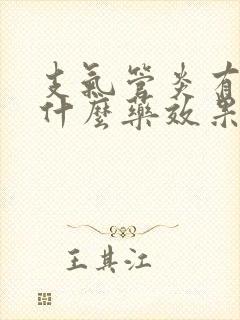 支氣管炎有
什麼藥效果
王其江